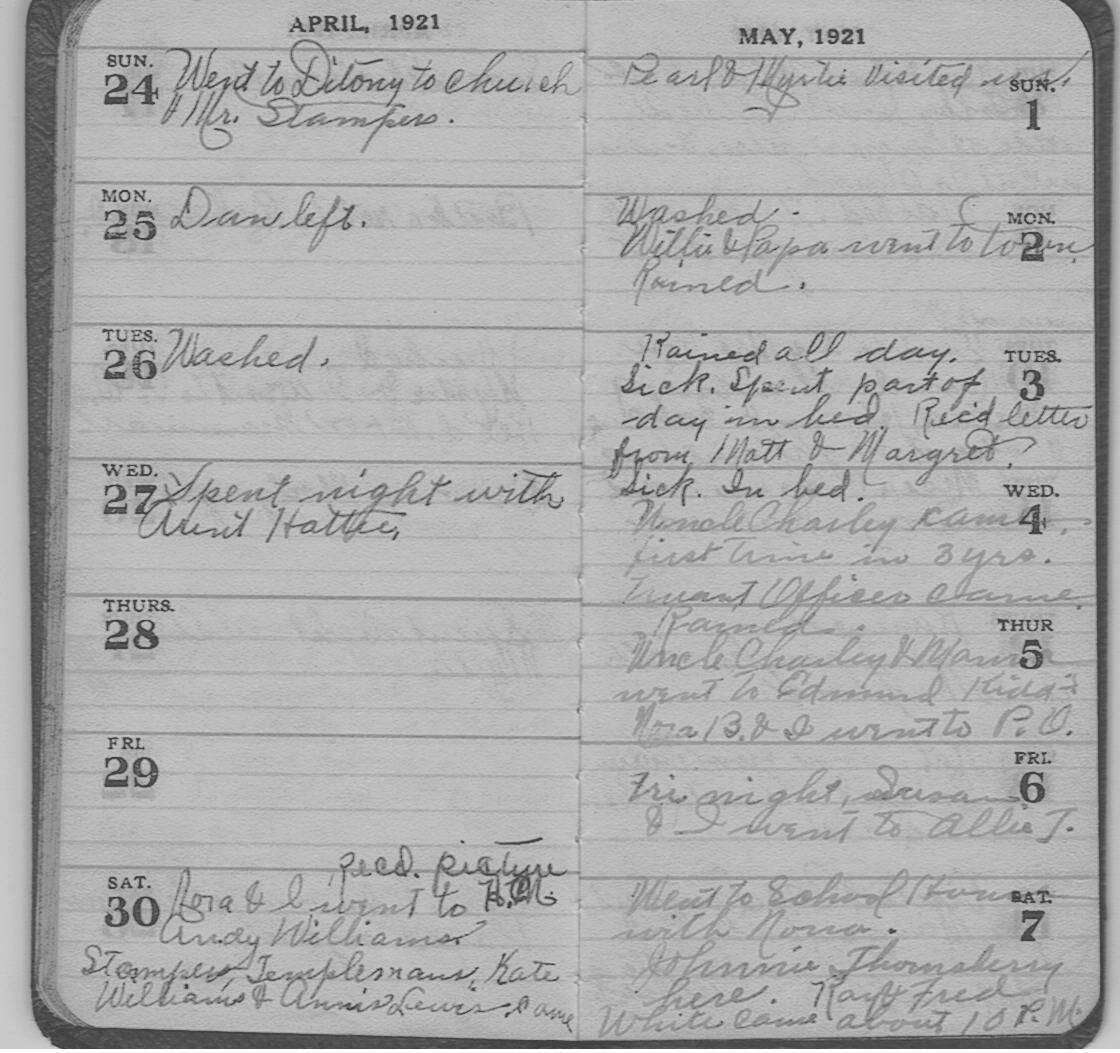 APRIL, 1921
SUN.
24 Went to Ditony to church
& Mr. Stampers.
MON.
25 Dan left.
TUES.
26 Washed.
WED.
27 Spent night with
Aunt Hattie,
THURS.
28
FRI.
29
recd. picture
SAT.
30 Nora & I went to
Andy Williams.
Stampers, Templemans, Kate
Williams & Annis Lewis came
MAY, 1921
Pearl & Myrtie visited us.
SUN.
1
Washed.
MON.
2
Willie & Papa went to town.
Rained.
Rained all day.
TUES.
3
Sick. Spent part of
day in bed. Rec'd letter
from Matt & Margret.
Sick. In bed.
WED.
4
Uncle Charley came,
first time in 3 yrs.
Truant Officer came.
Rained.
THUR
5
Uncle Charley & Mama
went to Edmund Kidd's
Nora B. & I went to P.O.
FRI.
6
Fri. night, Susan
& I went to Allie J.
Went to School House
SAT.
7
with Nora.
Johnnie Thornsberry
here. Ray & Fred
White came about 10 P.M.